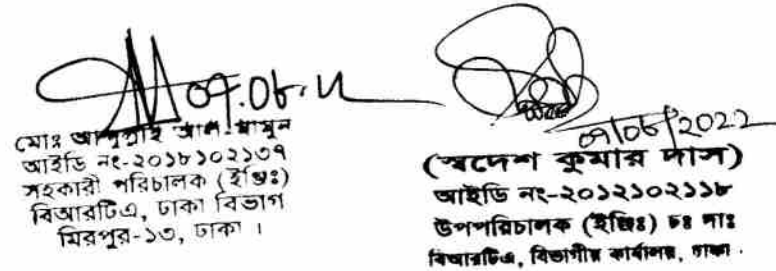 09.06.22
মোঃ আব্দুল্লাহ আল-মামুন
আইডি নং-২০১৮১০২১৩৭
সহকারী পরিচালক (ইঞ্জিঃ)
বিআরটিএ, ঢাকা বিভাগ
মিরপুর-১৩, ঢাকা ।
09/06/2022
(স্বদেশ কুমার দাস)
আইডি নং-২০১২১০২১১৮
উপপরিচালক (ইঞ্জিঃ) চঃ দাঃ
বিআরটিএ, বিভাগীয় কার্যালয়, ঢাকা .